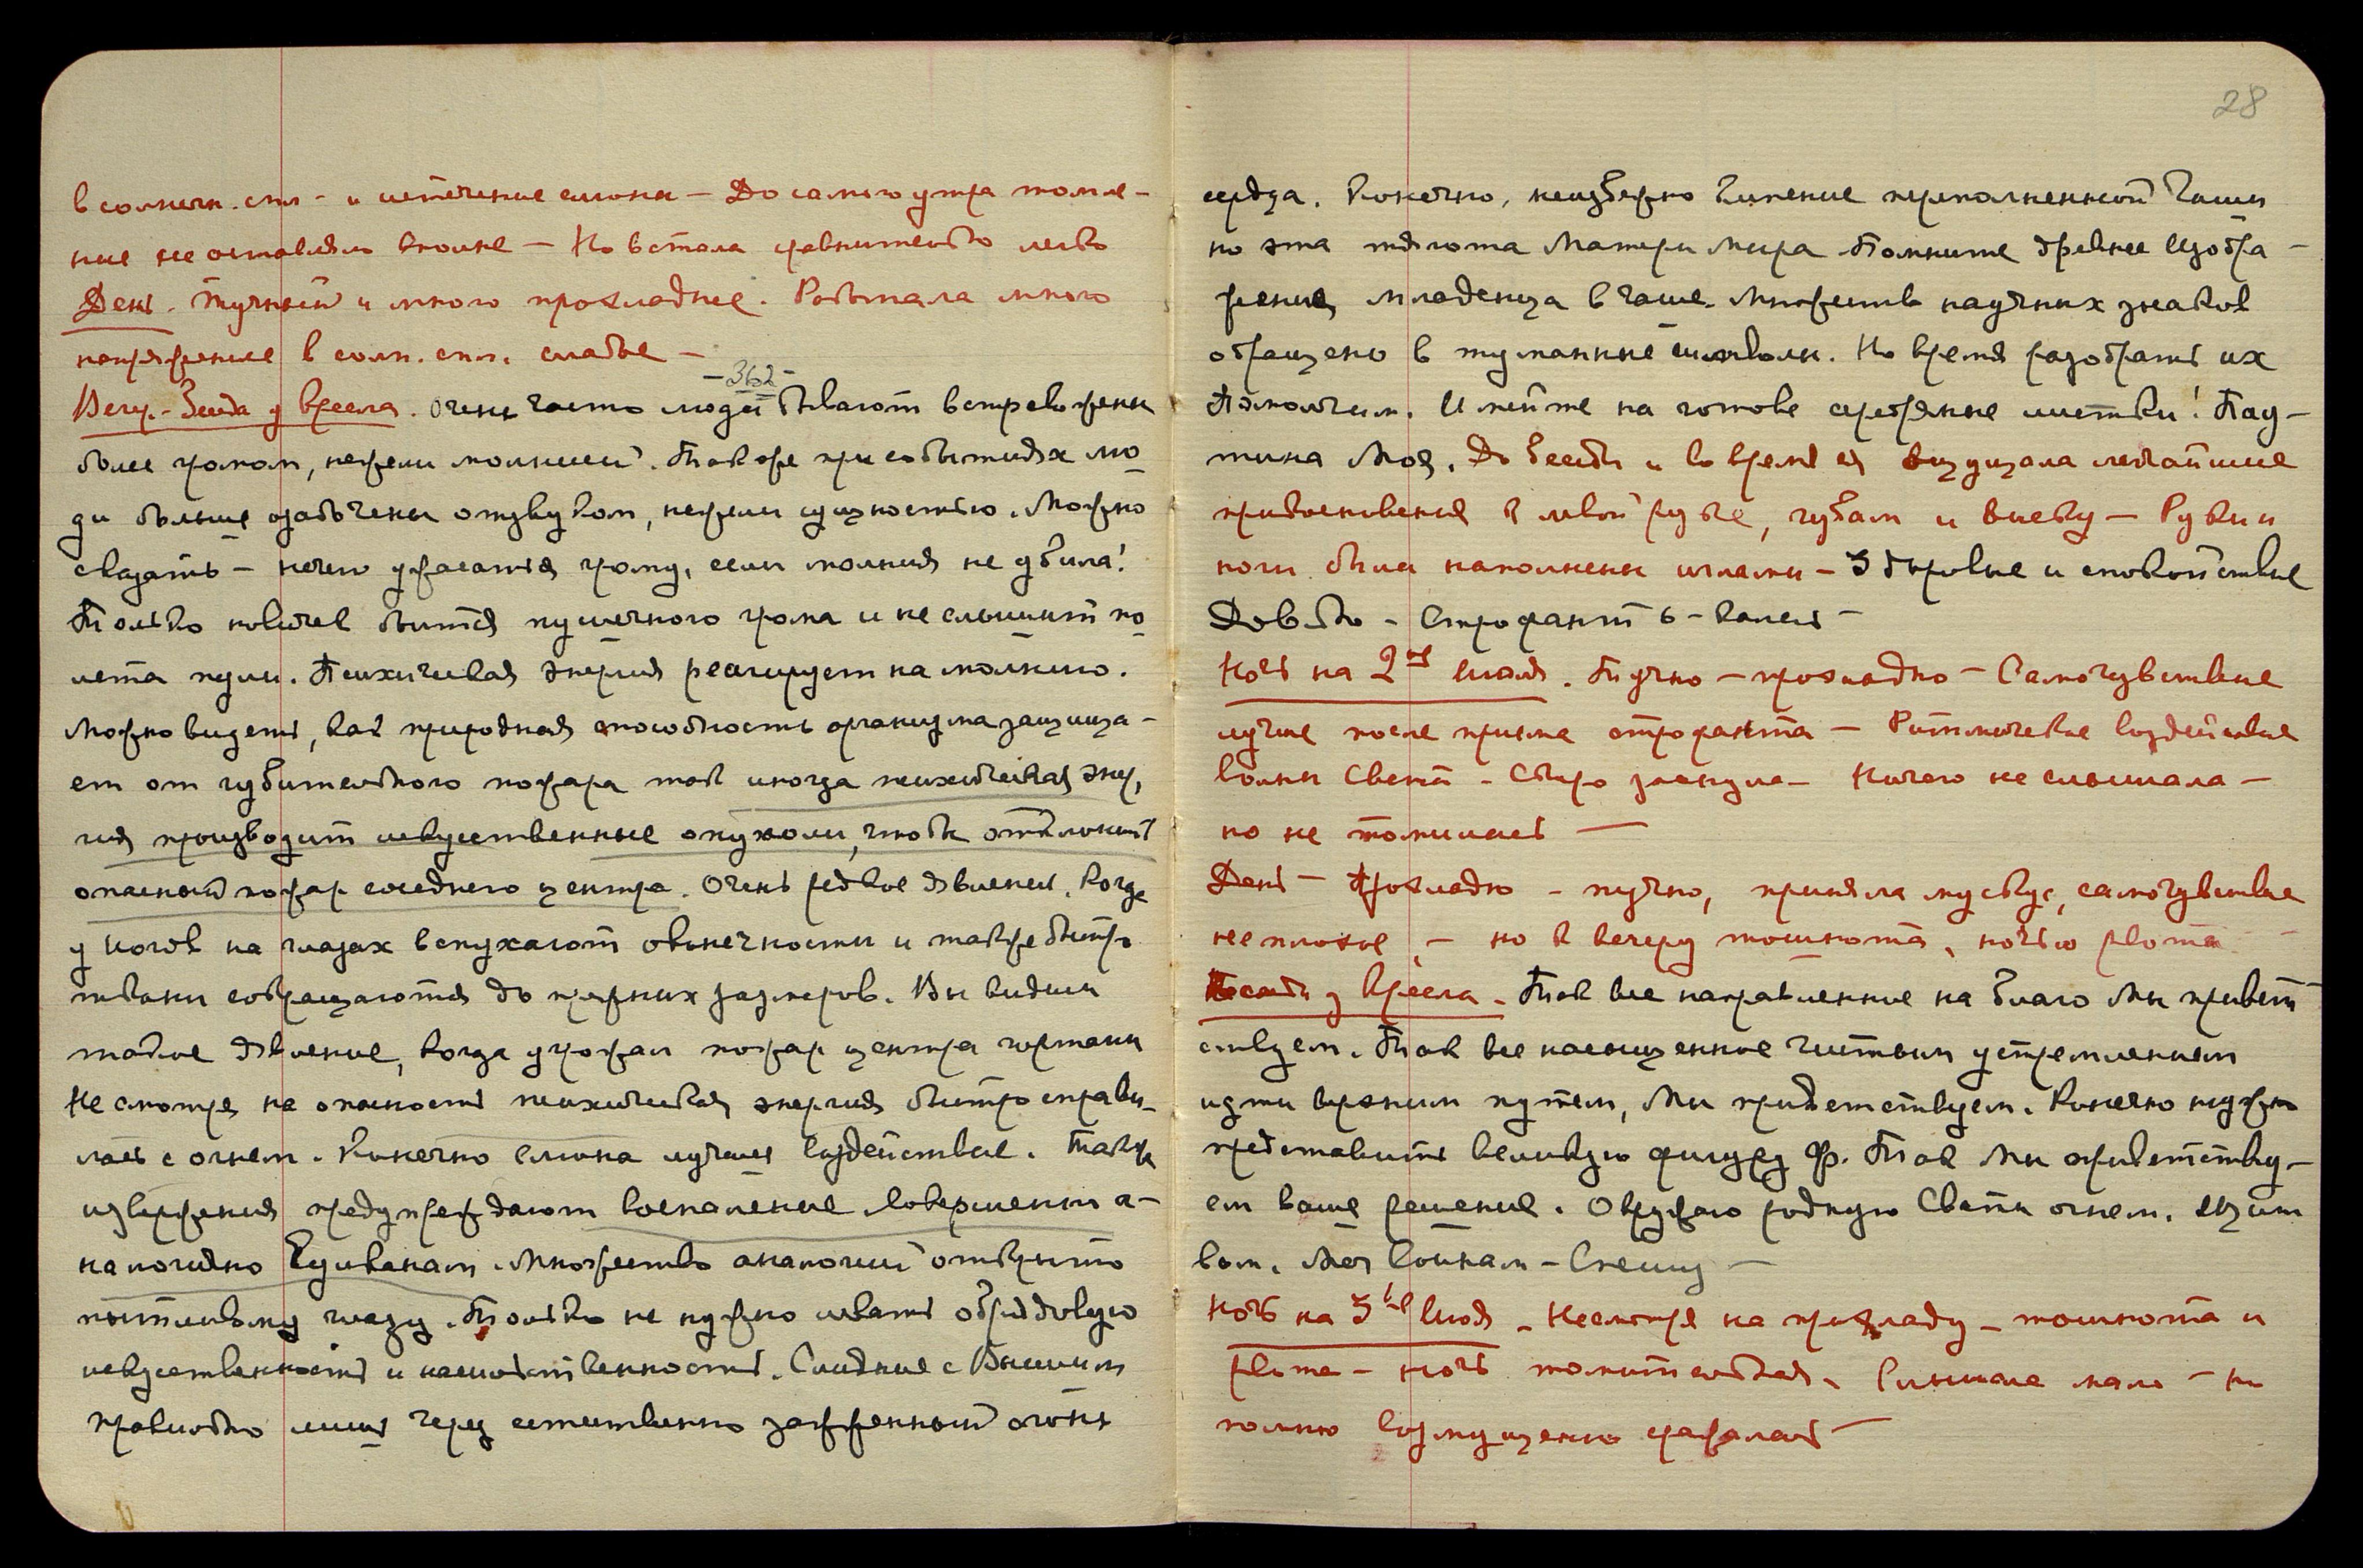 в солнечн. спл. - и истечение слюны - До самого утра томле-
ние не оставляло вполне - Но встала сравнительно легко
День. Тучный и много прохладнее. Работала много
напряжение в солн. спл. слабее -
- 362 -
Вечер. - Беседа у Кресла. Очень часто люди бывают встревожены
более громом, нежели молнией. Также при событиях лю
ди больше озабочены отзвуком, нежели сущностью. Можно
сказать - нечего ужасаться грому, если молния не убила!
Только новичек боится пушечного грома и не слышит по
лета пули. Психическая энергия реагирует на молнию.
Можно видеть, как природная способность организма защища-
ет от губительного пожара так иногда психическая энер,
гия производит искусственные опухоли, чтобы отклонить
опасный пожар соседнего центра. Очень редкое явление, когда
у Йогов на глазах вспухают оконечности и также быстро
ткани сокращаются до прежних размеров. Вы видели
такое явление, когда угрожал пожар центра гортани
Несмотря на опасность психическая энергия быстро справи-
лась с огнем. Конечно слюна лучшее воздействие. Также
извержения предупреждают воспаление совершенно а-
налогично вулканам. Множество аналогий открыто
пытливому глазу. Только не нужно искать обрядовую
искусственность и насильственность. Слияние с Высшим
правильно лишь через естественно зажженный огонь
28
сердца. Конечно, неизбежно кипение переполненной Чаши
но эта тягота Матери Мира Помните древнее Изобра-
жение младенца в чаше. Множество научных знаков
обращено в туманные символы. Но время разобрать их
Помолчим. Имейте на готове серебряные листки! Пау-
тина Моя. До беседы и во время ея ощущала легчайшие
прикосновения к левой руке, губам и виску - Руки и
ноги были наполнены иглами - Здоровье и спокойствие
Довольно - Строфант 6 - капель -
Ночь на 2ое Июля. Тучно - прохладно - Самочувствие
лучше после приема строфанта - Ритмическое воздействие
волны Света - Скоро заснула - Ничего не слышала -
но не томилась -
День - Прохладно - тучно, приняла мускус, самочувствие
неплохое - но к вечеру тошнота, ночью рвота
Беседа у Кресла - Так все направленное на благо Мы привет
ствуем. Так все насыщенное чистым устремлением
идти кратким путем, Мы приветствуем. Конечно нужно
представить великую фигуру Ф. Так Мы приветству-
ем ваше решение. Окружаю родную Свати огнем. Щит
вам. Моя воинам - Спешу -
Ночь на 3ье Июля - Несмотря на прохладу - тошнота и
рвота - ночь томительная. Слышала мало - но
помню возмущенно сражалась -